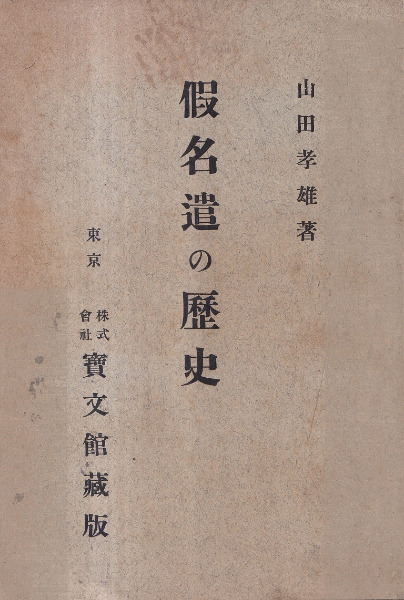 山田孝雄著
假名遣の歷史
東京
株式會社
寶文館藏版